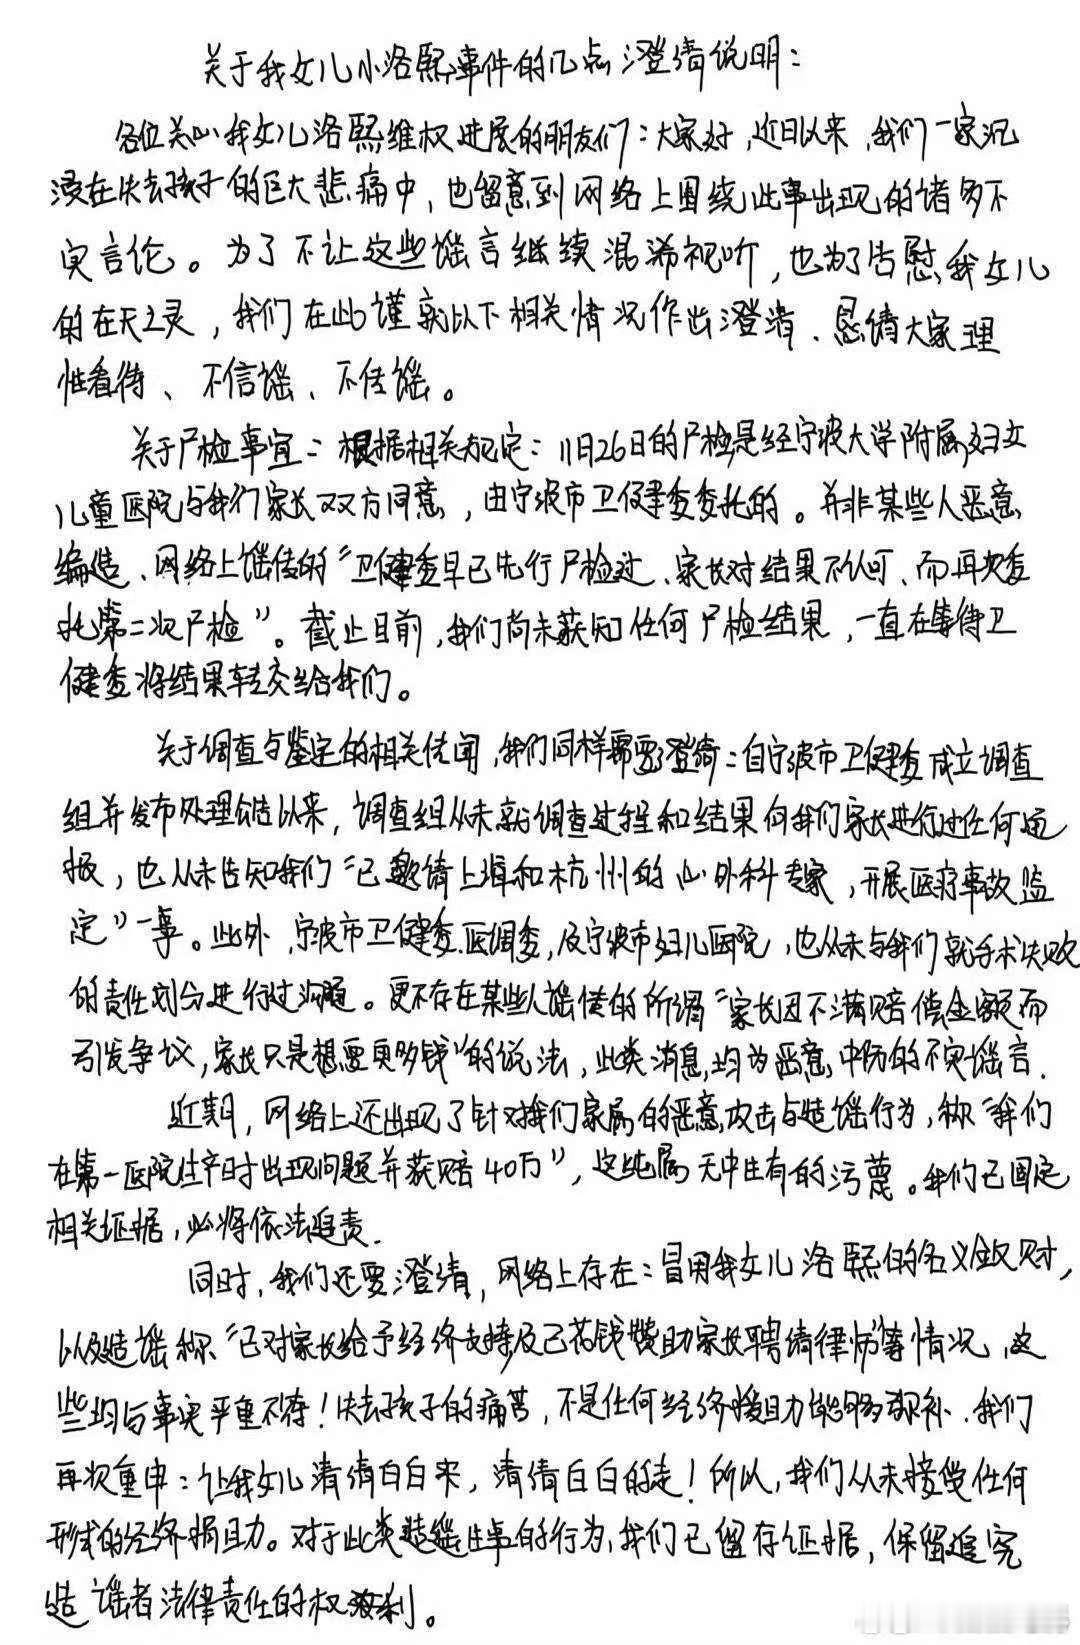 关于我女儿小洛熙事件的几点澄清说明：
各位关心我女儿洛熙维权进展的朋友们：大家好，近日以来，我们一家沉
浸在失去孩子的巨大悲痛中，也留意到网络上围绕此事出现的诸多不
实言论。为了不让这些谣言继续混淆视听，也为了告慰我女儿
的在天之灵，我们在此谨就以下相关情况作出澄清、恳请大家理
性看待、不信谣、不传谣。
关于尸检事宜：根据相关规定：11月26日的尸检是经宁波大学附属妇女
儿童医院与我们家长双方同意，由宁波市卫健委委托的。并非某些人恶意
编造、网络上谣传的“卫健委早已先行尸检过、家长对结果不认可、而再次委
托第二次尸检”。截止目前，我们尚未获知任何尸检结果，一直在等待卫
健委将结果转交给我们。
关于调查与鉴定的相关传闻，我们同样需要澄清：自宁波市卫健委成立调查
组并发布处理公告以来，调查组从未就调查过程和结果向我们家长进行过任何通
报，也从未告知我们“已邀请上海和杭州的心外科专家，开展医疗事故鉴
定”一事。此外，宁波市卫健委、医调委，及宁波市妇儿医院，也从未与我们就手术失败
的责任划分进行过沟通。更不存在某些人谣传的所谓“家长因不满赔偿金额而
引发争议，家长只是想要更多钱”的说法，此类消息，均为恶意中伤的不实谣言.
近期，网络上还出现了针对我们家属的恶意攻击与造谣行为，称“我们
在第一医院生产时出现问题并获赔40万”，这纯属无中生有的污蔑。我们已固定
相关证据，必将依法追责.
同时，我们还要澄清，网络上存在：冒用我女儿洛熙的名义敛财，
以及造谣称“已对家长给予经济支持及已花钱赞助家长聘请律师”等情况，这
些均与事实严重不符！失去孩子的痛苦，不是任何经济援助能够弥补.我们
再次重申：让我女儿清清白白来，清清白白的走！所以，我们从未接受任何
形式的经济捐助。对于此类造谣生事的行为，我们已留存证据，保留追究
造谣者法律责任的权利。